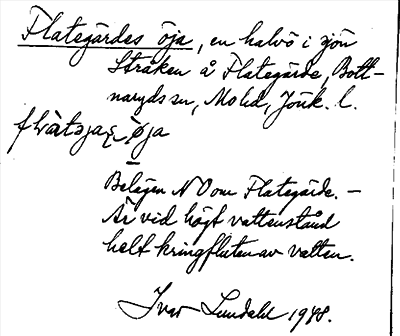 Flategärdes öja, en halvö i sjön
Stråken å Flategärde, Bott-
naryds sn, Mo hd, Jönk. l.
öja
Belägen NO om Flategärde. –
Är vid högt vattenstånd
helt kringfluten av vatten.
Ivar Lundahl 1948.